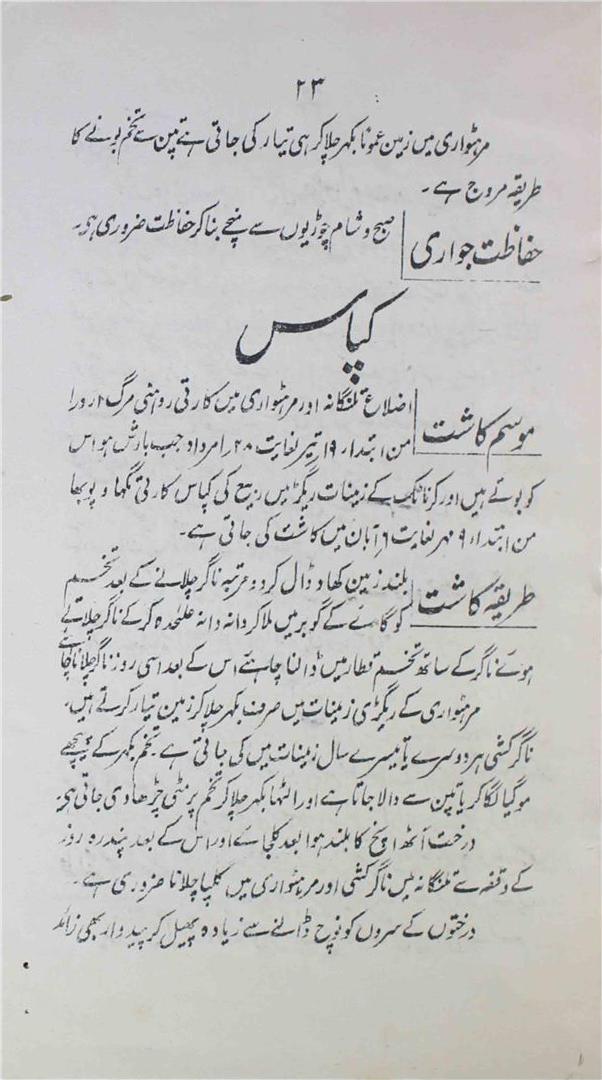 ۲۳
مرہٹواری میں زمین عموماً بکھر چلا کر ہی تیار کی جاتی ہے تپن سے تخم بونے کا
طریقہ مروج ہے۔
حفاظت جواری
صبح و شام چڑیوں سے نیچے بنا کر حفاظت ضروری ہی۔
کپاس
موسم کاشت
اضلاع تلنگانہ اور مرہٹواری میں کارتی روہنی مرگ
من ابتداء ۱۹ تیر لغایت ۲۸ امرداد جب بارش ہو اس
کو بوتے ہیں اور کرناٹک کے زمینات ریگڑ میں ربیع کی کپاس کارتی مگھا و پوبھا
من ابتداء ۹ مہر لغایت ۶ آبان میں کاشت کی جاتی ہے۔
طریقہ کاشت
بلند زمین کھاد ڈال کر دو مرتبہ ناگر چلانے کے بعد تخم
کو گائے کے گوبر میں ملا کر دانہ دانہ علٰحدہ کر کے ناگر چلاتے
ہوئے ناگر کے ساتھ تخم قطار میں ڈالنا چاہئے اس کے بعد اسی روز ناگر چلانا چاہئے
مرہٹواری کے ریگڑی زمینات میں صرف بکھر چلا کر زمین تیار کرتے ہیں۔
ناگر کشی ہر دوسرے یا تیسرے سال زمینات میں کی جاتی ہے۔ تخم بکھر کے پیچھے
موگیا لگا کر یا تپن سے ڈالا جاتا ہے اور الٹھا بکھر چلا کر تخم پر مٹی چڑھا دی جاتی ہی۔
درخت آٹھ اونچ کا بلند ہوا بعد کلپائے اور اس کے بعد پندرہ روز
کے وقفہ سے تلنگانہ میں ناگر کشی اور مرہٹواری میں کلپا چلانا ضروری ہے۔
درختوں کے سروں کو نوچ ڈالنے سے زیادہ پھیل کر پیدوار بھی زائد